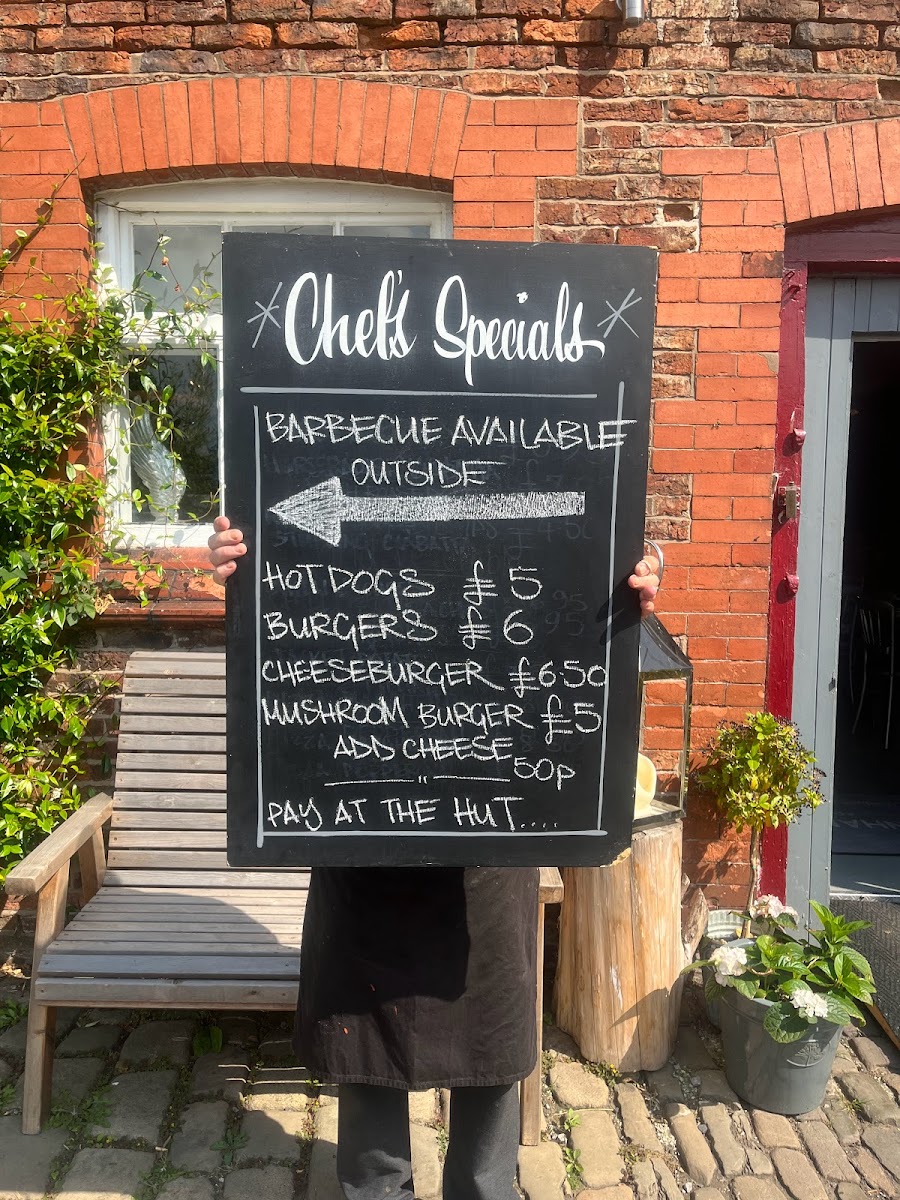 Chef's Specials
BARBECUE AVAILABLE
OUTSIDE
HOT DOGS £5
BURGERS £6
CHEESEBURGER £6.50
MUSHROOM BURGER £5
ADD CHEESE 50p
PAY AT THE HUT....